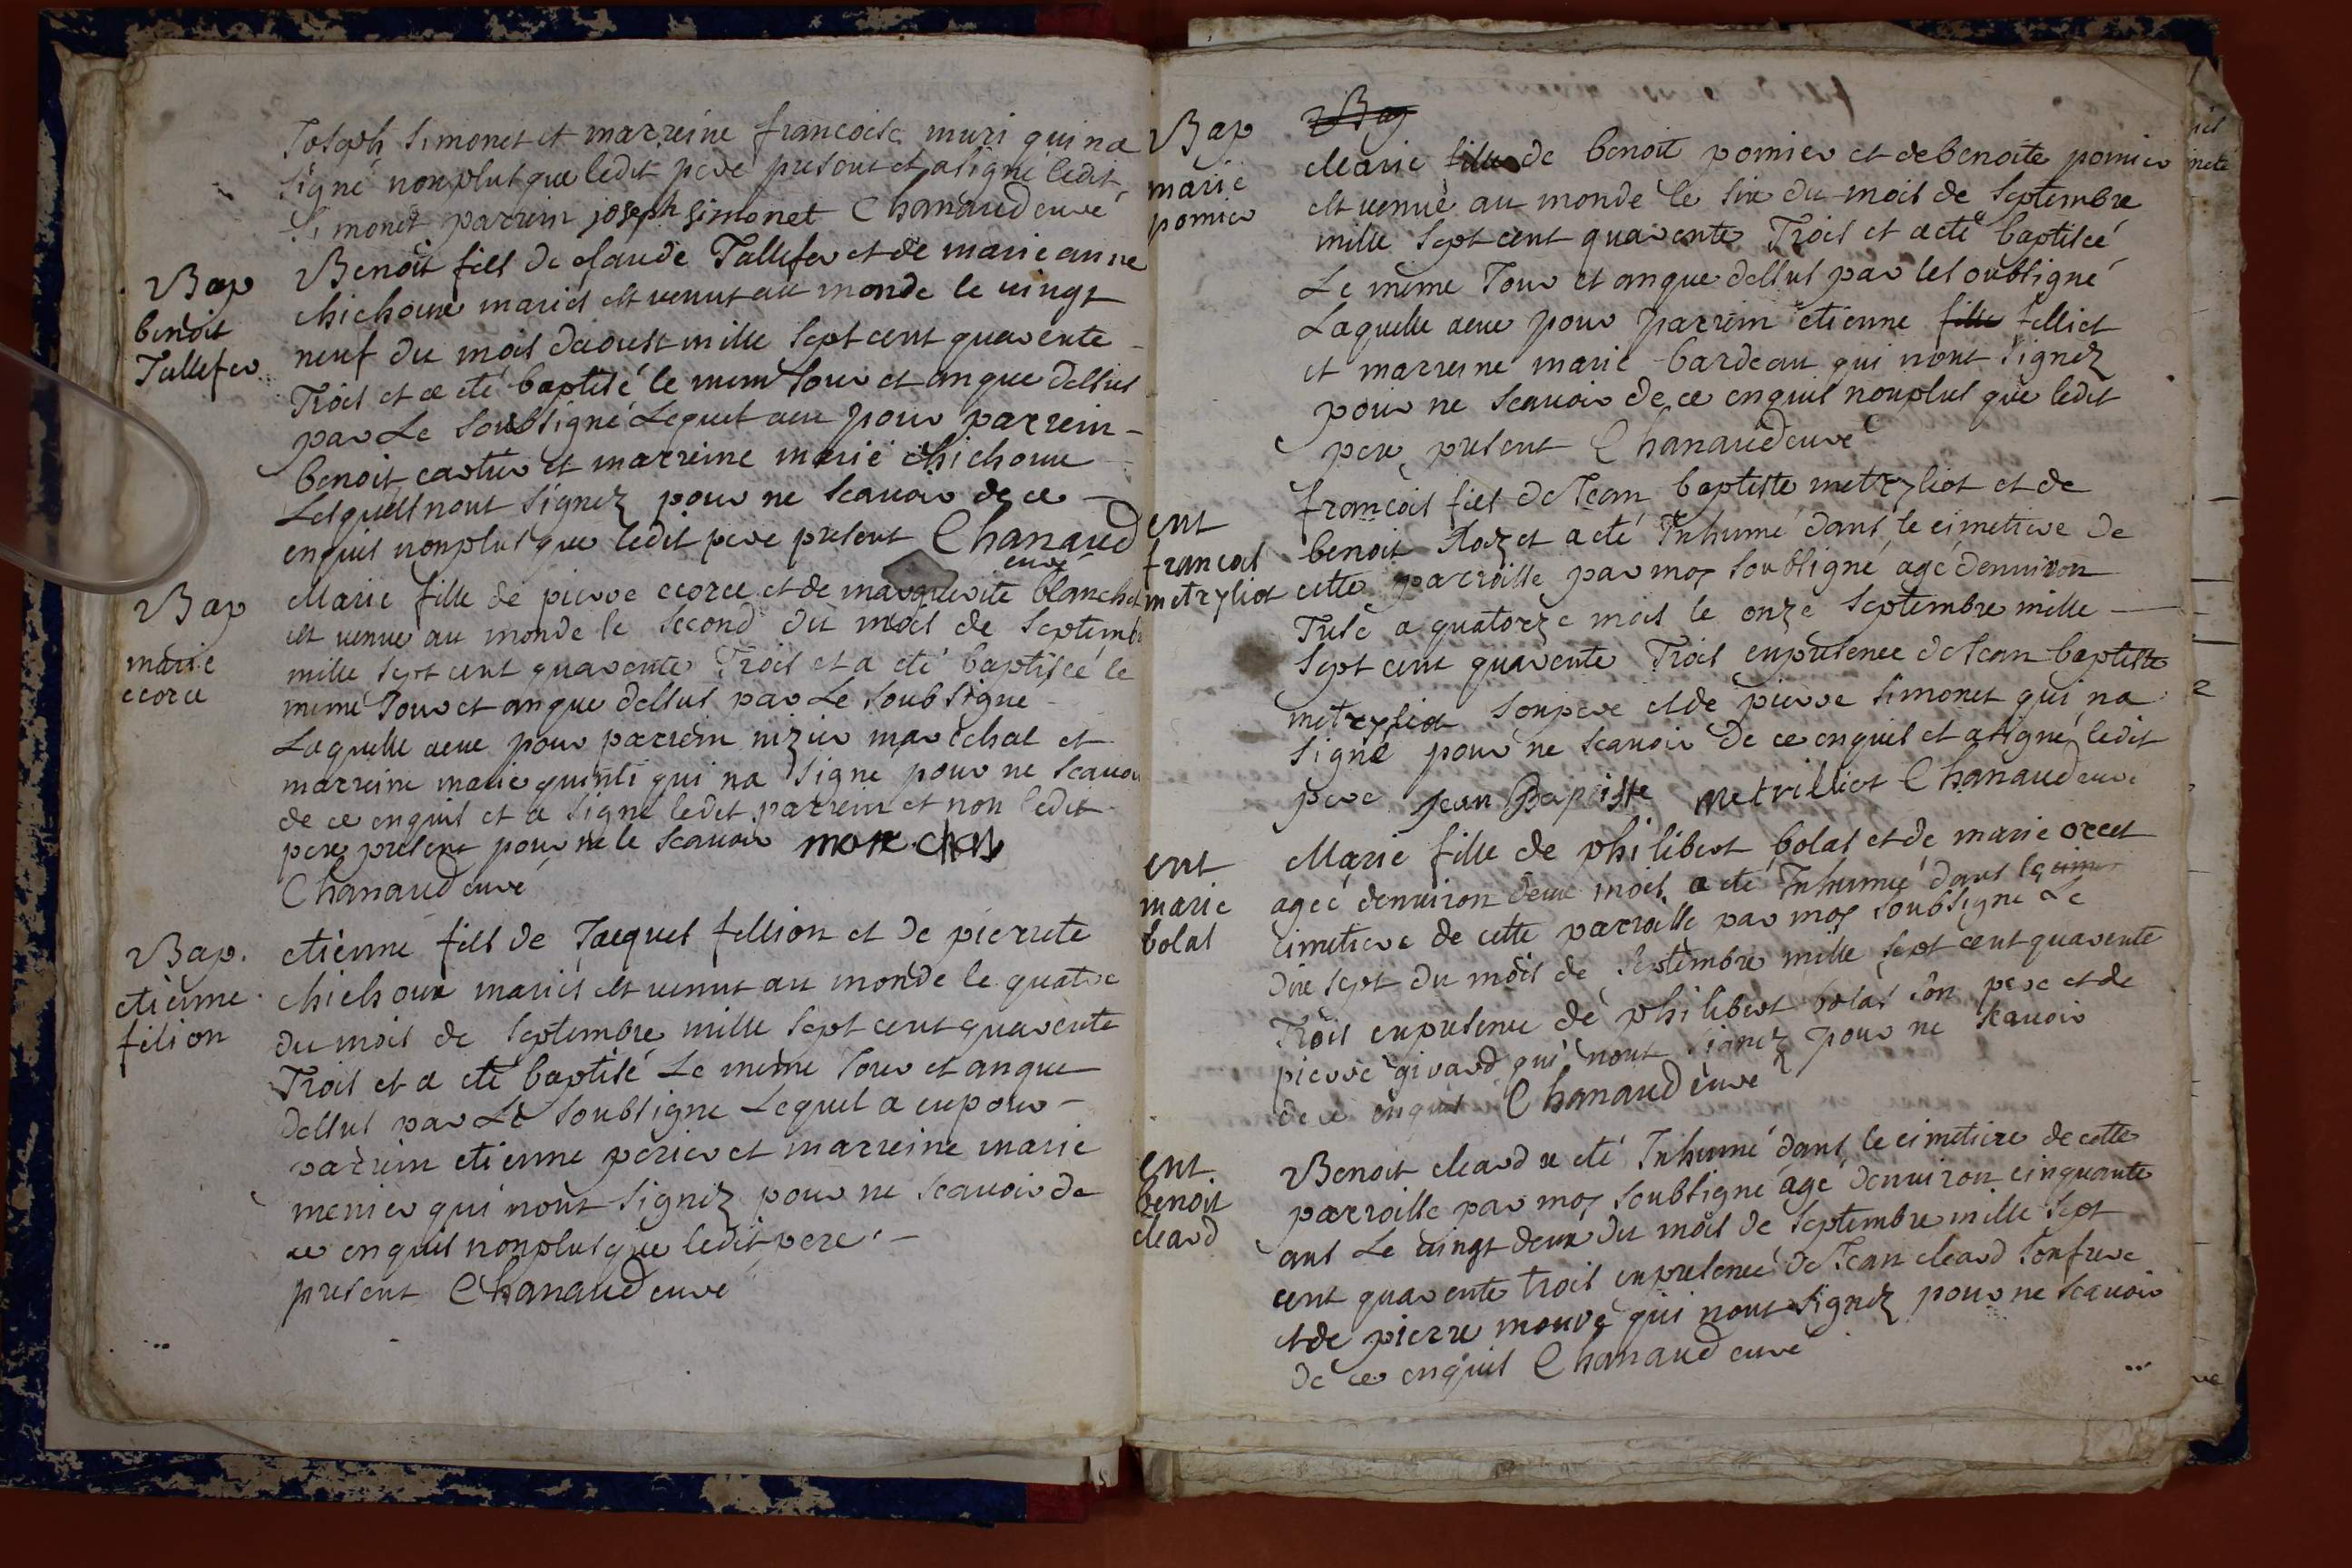 Joseph Simonet et marreine francoise muri qui na
signé nonplus que ledit pere present et a signé ledit
Simonet parrein joseph simonet Chanaud curé
Bap
benoit
Tallefer
Benoit fils de claude Tallefer et de marie anne
chichoux mariés est venut au monde le vingt
neuf du mois daoust mille sept cent quarente
Trois et a eté baptisé le meme Jour et an que dessus
par Le soubsigné Lequel a eu pour parrein
benoit cartier et marreine marie chichoux
Lesquels nont signez pour ne scavoir de ce
enquis nonplus que ledit pere present Chanaud
curé
Bap
marie
ecorce
Marie fille de pierre ecorce et de marguerite blanchet
est venue au monde le second du mois de Septembre
mille sept cent quarente Trois et a eté baptisée le
meme Jour et an que dessus par Le soubsigné
Laquelle a eue pour parrein nizier marechal et
marreine marie quinti qui na signé pour ne scavoir
de ce enquis et a signé ledit parrein et non ledit
pere present pour ne le scavoir
Chanaud curé
Bap.
etienne
filion
etienne fils de Jacques fillion et de pierrete
chichoux mariés est venut au monde le quatre
du mois de Septembre mille sept cent quarente
Trois et a eté baptisé Le meme Jour et an que
dessus par Le soubsigné Lequel a eu pour
parrein etienne perier et marreine marie
menier qui nont signez pour ne scavoir de
ce enquis nonplus que ledit pere
present Chanaud curé
Bap
marie
pomier
Bap
Marie fille de benoit pomier et de benoite pomier
est venue au monde le six du mois de Septembre
mille sept cent quarente Trois et a eté baptisée
Le meme Jour et an que dessus par le soubsigné
Laquelle a eue pour parrein etienne fille
et marreine marie bardeau qui nont signez
pour ne scavoir de ce enquis nonplus que ledit
pere present Chanaud curé
ent
francois
metryliot
francois fils de Jean baptiste metryliot et de
benoit Rozet a eté Inhumé dans le cimetiere de
cette parroisse par moy soubsigné agé denviron
Trese a quatorze mois le onze Septembre mille
sept cent quarente Trois en presence de Jean baptiste
metryliot son pere et de pierre simonet qui na
signé pour ne scavoir de ce enquis et a signé ledit
pere jean Baptiste metrilliot Chanaud curé
ent
marie
bolas
Marie fille de philibert bolas et de marie
agée denviron deux mois a eté Inhumée dans le cime
cimetiere de cette parroisse par moy soubsigné Le
dix sept du mois de Septembre mille sept cent quarente
Trois en presence de philibert bolas son pere et de
pierre givard qui nont signez pour ne scavoir
de ce enquis Chanaud curé
ent
benoit
cleard
Benoit cleard a eté Inhumé dans le cimetiere de cette
parroisse par moy soubsigné agé denviron cinquante
ans Le vingt deux du mois de Septembre mille sept
cent quarente trois en presence de Jean cleard son frere
et de pierre qui nont signez pour ne scavoir
de ce enquis Chanaud curé